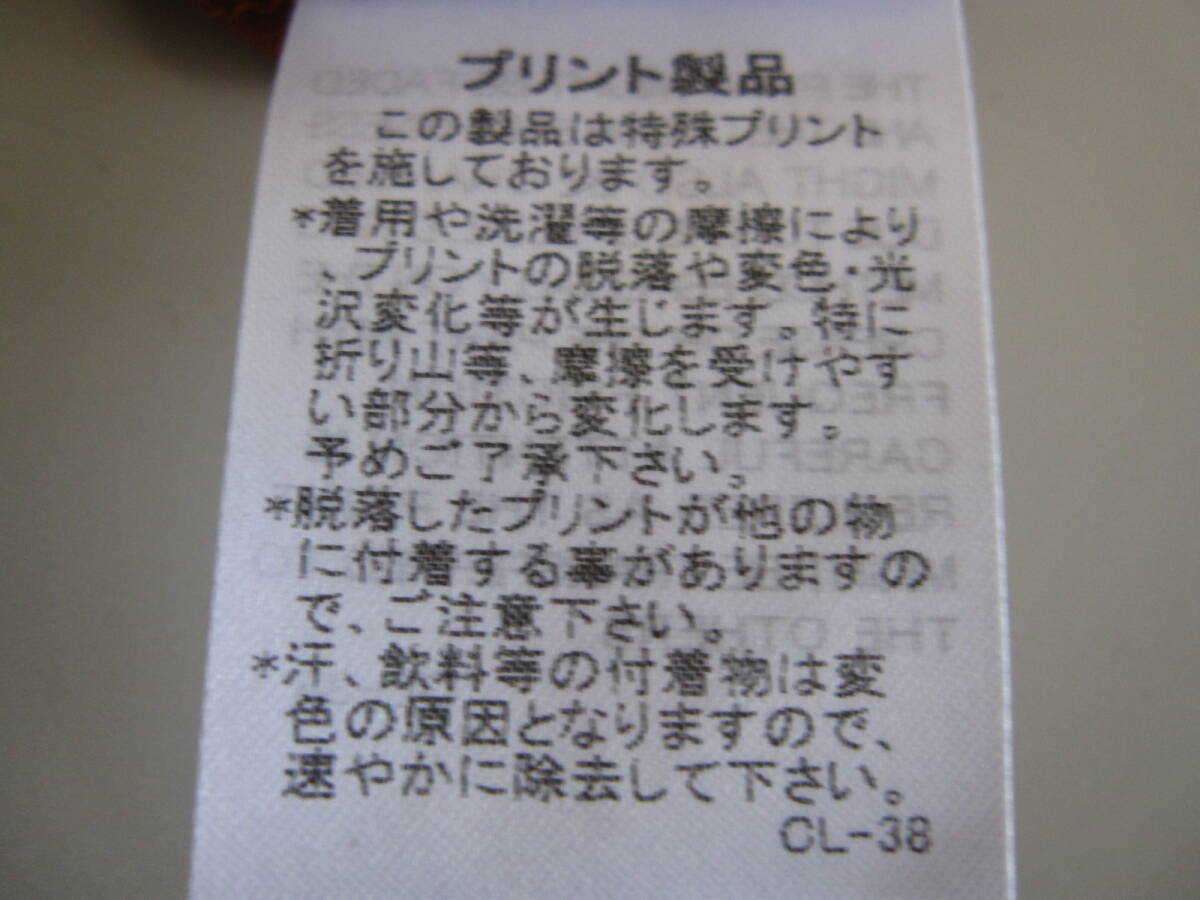 プリント製品
この製品は特殊プリント
を施しております。
*着用や洗濯等の摩擦により
、プリントの脱落や変色・光
沢変化等が生じます。特に
折り山等、摩擦を受けやす
い部分から変化します。
予めご了承下さい。
*脱落したプリントが他の物
に付着する事がありますの
で、ご注意下さい。
*汗、飲料等の付着物は変
色の原因となりますので、
速やかに除去して下さい。
CL-38